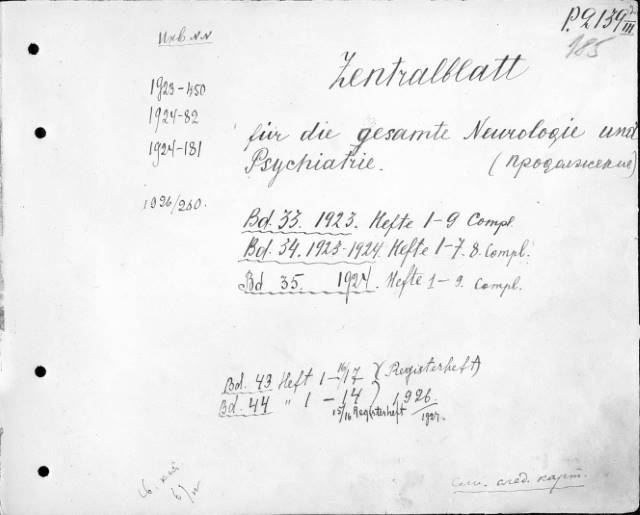 P. 2139/III
185
Инв. N.N
Zentralblatt
1923-450
1924-82
1924-181
für die gesamte Neurologie und
Psychiatrie. (продолжение)
1926/260.
Bd. 33. 1923. Hefte 1-9 Compl.
Bd. 34. 1923-1924. Hefte 1-7. 8. Compl.
Bd 35. 1924. Hefte 1-9. Compl.
Bd. 43 Heft 1-16/17 (Registerheft)
Bd. 44 " 1-14 1926.
15/16 Registerheft 1927.
См. след. карт.